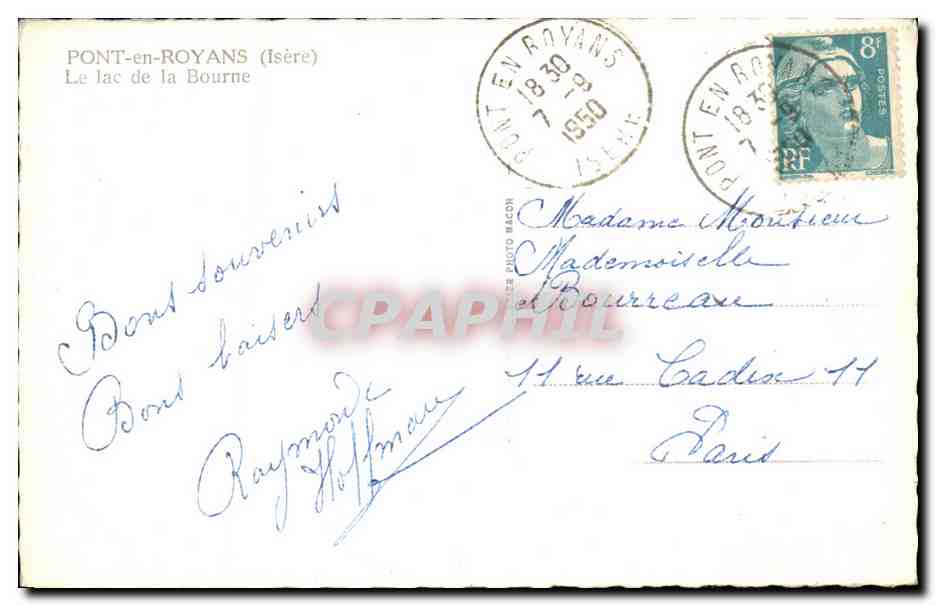 PONT-en-ROYANS (Isère)
Le lac de la Bourne
PONT EN ROYANS
18 30
7 - 9
1950
ISERE
PONT EN ROYANS
18 30
7
8F
POSTES
RF
PHOTO MACON
CPAPHIL
Bons souvenirs
Bons baisers
Raymonde
Hoffman
Madame Monsieur
Mademoiselle
et Bourreau
11 rue Cadix 11
Paris